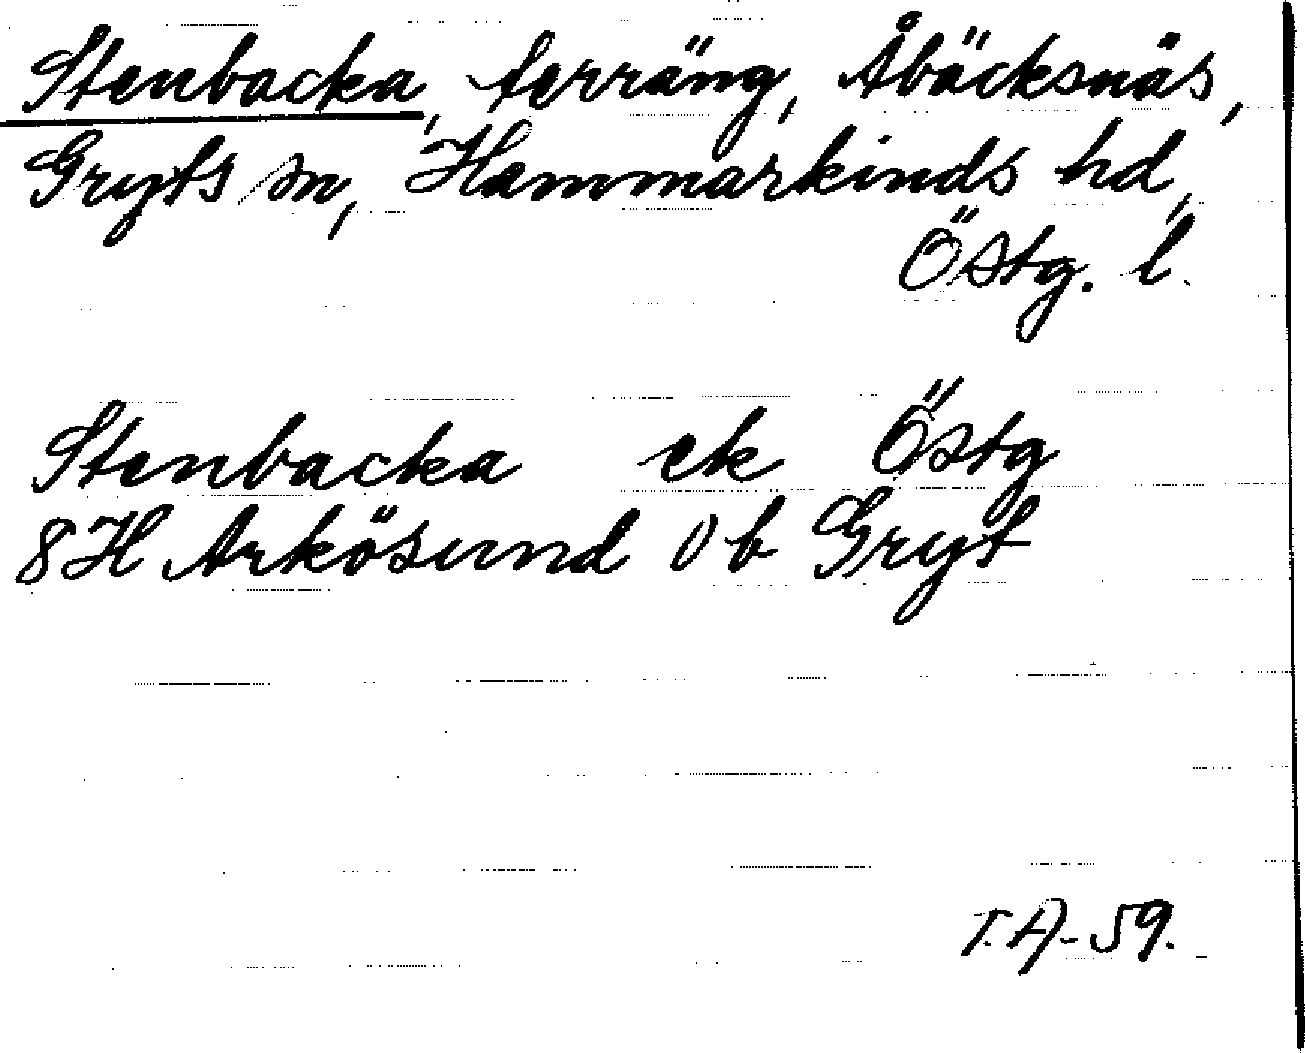 Stenbacka, terräng, Åbäcksnäs,
Gryts sn, Hammarkinds hd,
Östg. l.
Stenbacka ek Östg
8H Arkösund 0b Gryt
T.A-59.